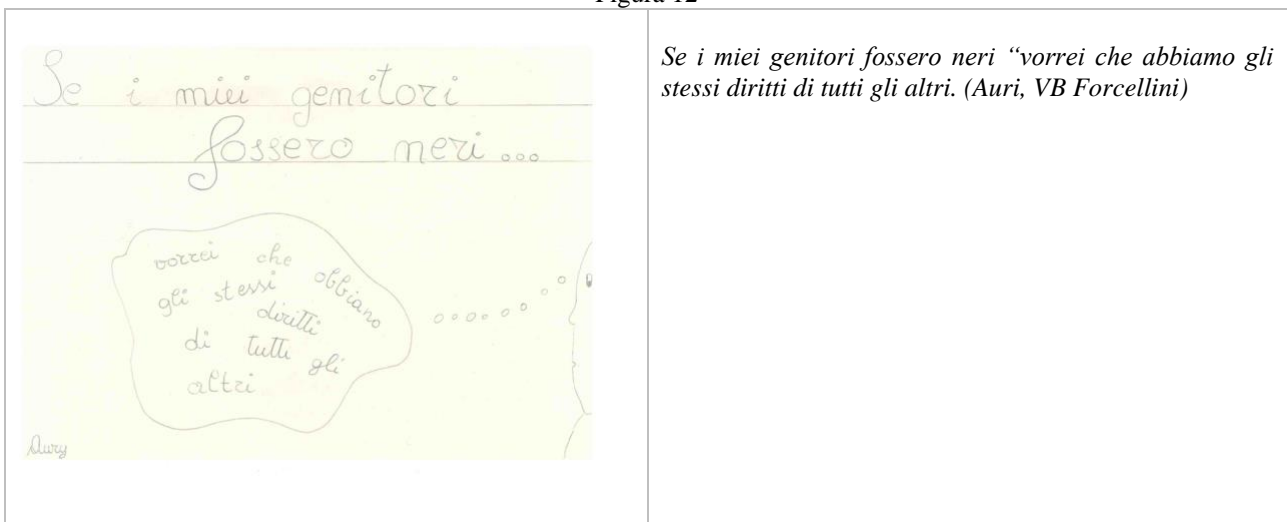 Figura 12
Se i miei genitori
fossero neri...
vorrei che abbiano
gli stessi diritti
di tutti gli
altri
Aury
Se i miei genitori fossero neri “vorrei che abbiamo gli
stessi diritti di tutti gli altri. (Auri, VB Forcellini)